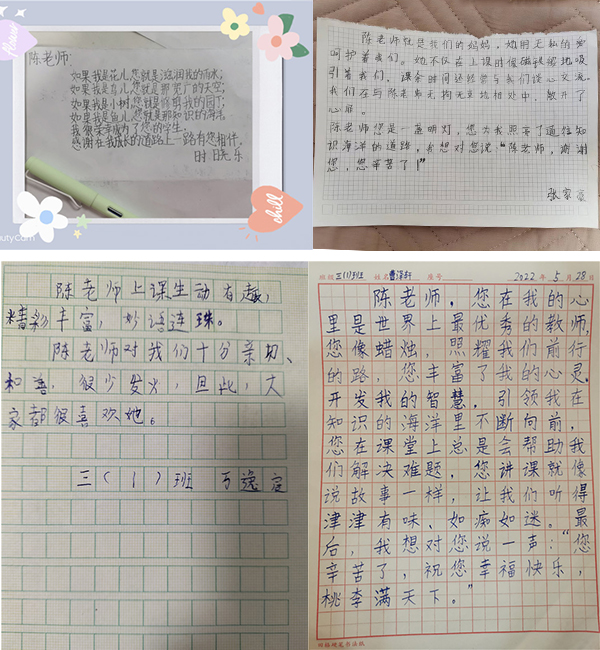 陈老师:
如果我是花儿,您就是滋润我的雨水;
如果我是鸟儿,您就是那宽广的天空;
如果我是小树,您就是修剪我的园丁;
如果我是鱼儿,您就是那知识的海洋。
我很荣幸成为了您的学生。
感谢在我成长的道路上一路有您相伴。
时晓乐
chill
陈老师就是我们的妈妈,她用无私的爱
呵护着我们。她不仅在上课时像磁铁般地吸
引着我们,课余时间还经常与我们谈心交流。
我们在与陈老师无拘无束的相处中,敞开了
心扉。
陈老师您是一盏明灯,您为我照亮了通往知
识海洋的道路,我想对您说:“陈老师,谢谢
您,您辛苦了!”
张家
陈老师上课生动有趣,
精彩丰富,妙语连珠。
陈老师对我们十分亲切、
和善,很少发火,因此,大
家都很喜欢她。
三(1)班 丁逸宸
班级 三(1)班 姓名 曹泽轩 座号 2022年5月28日
陈老师,您在我的心
里是世界上最优秀的教师,
您像蜡烛,照耀我们前行
的路,您丰富了我的心灵,
开发我的智慧,引领我在
知识的海洋里不断向前,
您在课堂上总是会帮助我
们解决难题,您讲课就像
说故事一样,让我们听得
津津有味、如痴如迷。最
后,我想对您说一声:“您
辛苦了,祝您幸福快乐,
桃李满天下。”